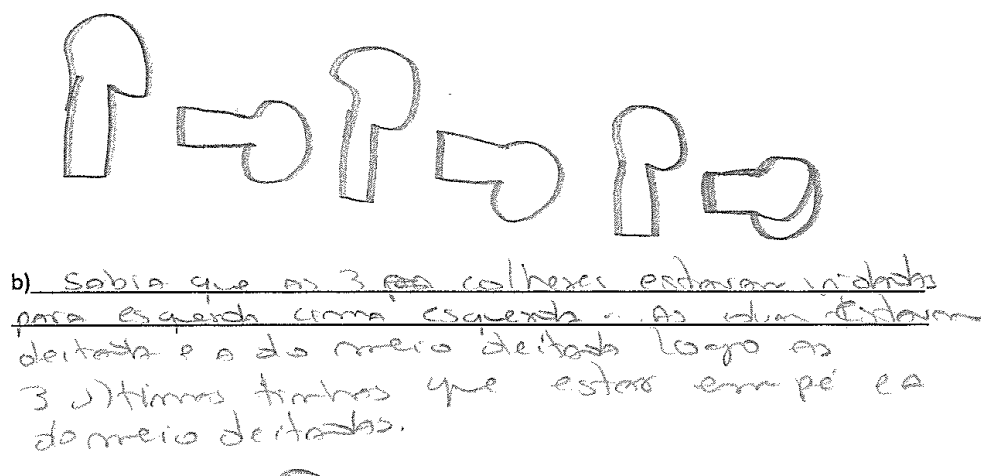 b) Sabia que as 3 colheres estavam
para esquerda cima esquerda... As
deitada e a do meio deitada logo as
3 ultimas tinhas que estar em pé e a
do meio deitadas.